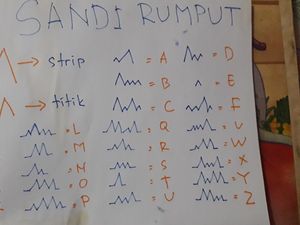 SANDI RUMPUT
→ strip
→ titik
= A
= D
= B
= E
= C
= F
= L
= Q
= V
= M
= R
= W
= N
= S
= X
= O
= T
= Y
= P
= U
= Z